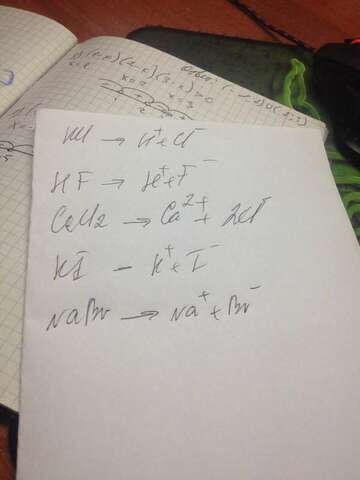 (2-x)(3-x)>0
HCl → H⁺+Cl⁻
HF → H⁺+F⁻
CaCl2 → Ca²⁺+ 2Cl⁻
KI – K⁺+I⁻
NaBr → Na⁺+Br⁻